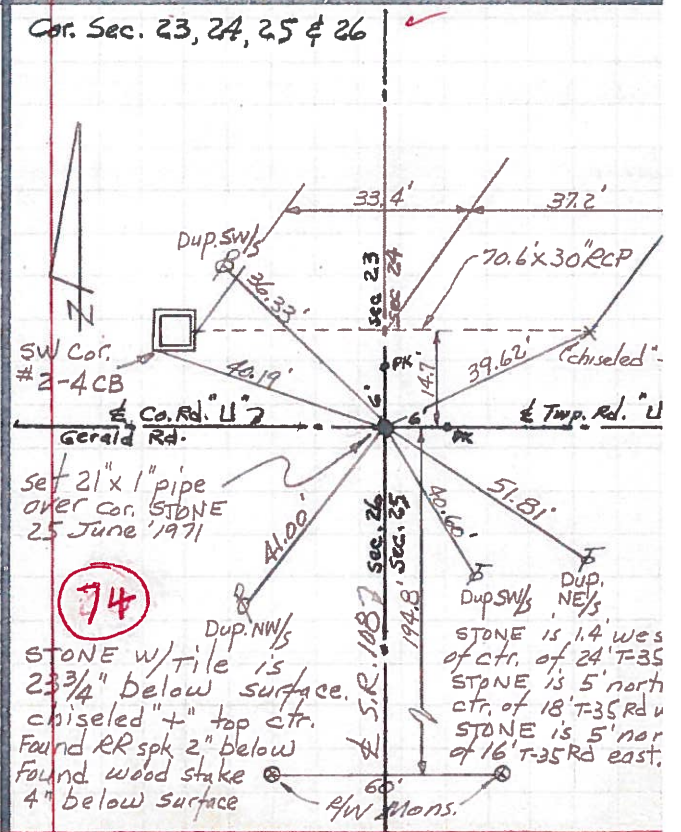 Cor. Sec. 23, 24, 25 & 26
33.4'
37.2'
Dup. SW/s
36.33'
Sec 23
Sec 24
70.6' x 30" RCP
N
SW Cor.
#2-4 CB
40.19'
PK
6'
14.7'
39.62'
(chiseled "-
℄ Co. Rd. "U"
Gerald Rd.
6'
PK
℄ Twp. Rd. "U
Set 21" x 1" pipe
over cor. STONE
25 June '1971
41.00'
Sec. 26
Sec. 25
40.60'
51.81'
74
Dup. NW/s
Dup SW/s
Dup.
NE/s
℄ S.R. 108
194.8'
STONE W/Tile is
23 3/4" below surface.
chiseled "+" top ctr.
Found RR spk 2" below
Found wood stake
4" below surface
STONE is 1.4' wes
of ctr. of 24' T-35
STONE is 5' north
ctr. of 18' T-35 Rd w
STONE is 5' nor
of 16' T-35 Rd east.
60'
R/W Mons.